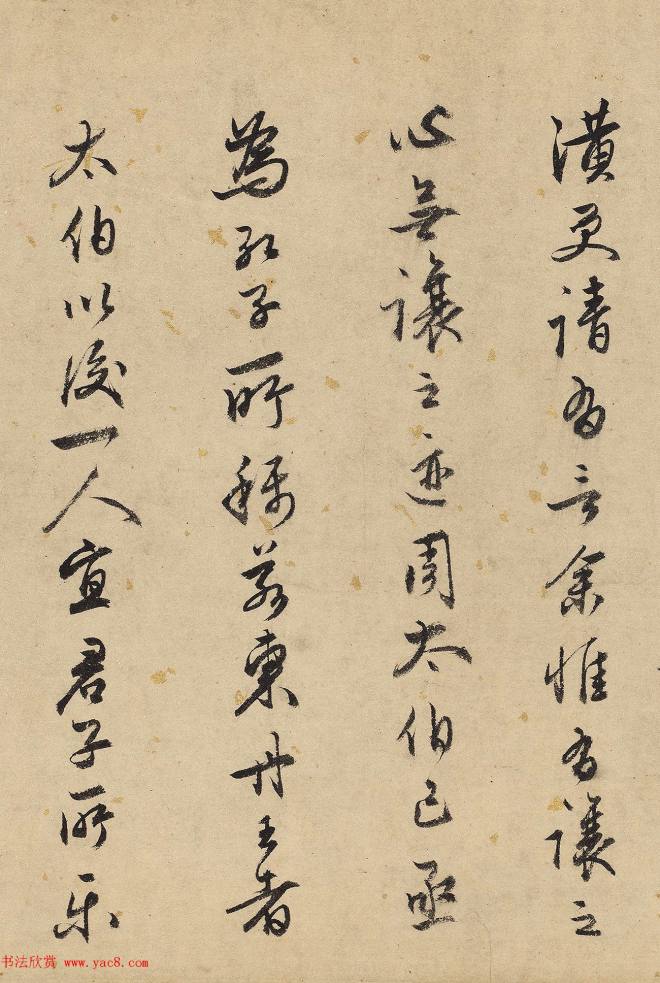 潢更請为言余惟为讓之
心無讓之迹周太伯已亟
為孔子所稱若東丹王者
太伯以後一人宜君子所乐
书法欣赏 www.yac8.com